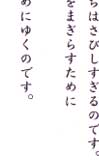 ちはさびしすぎるのです。
をまぎらすために
めにゆくのです。